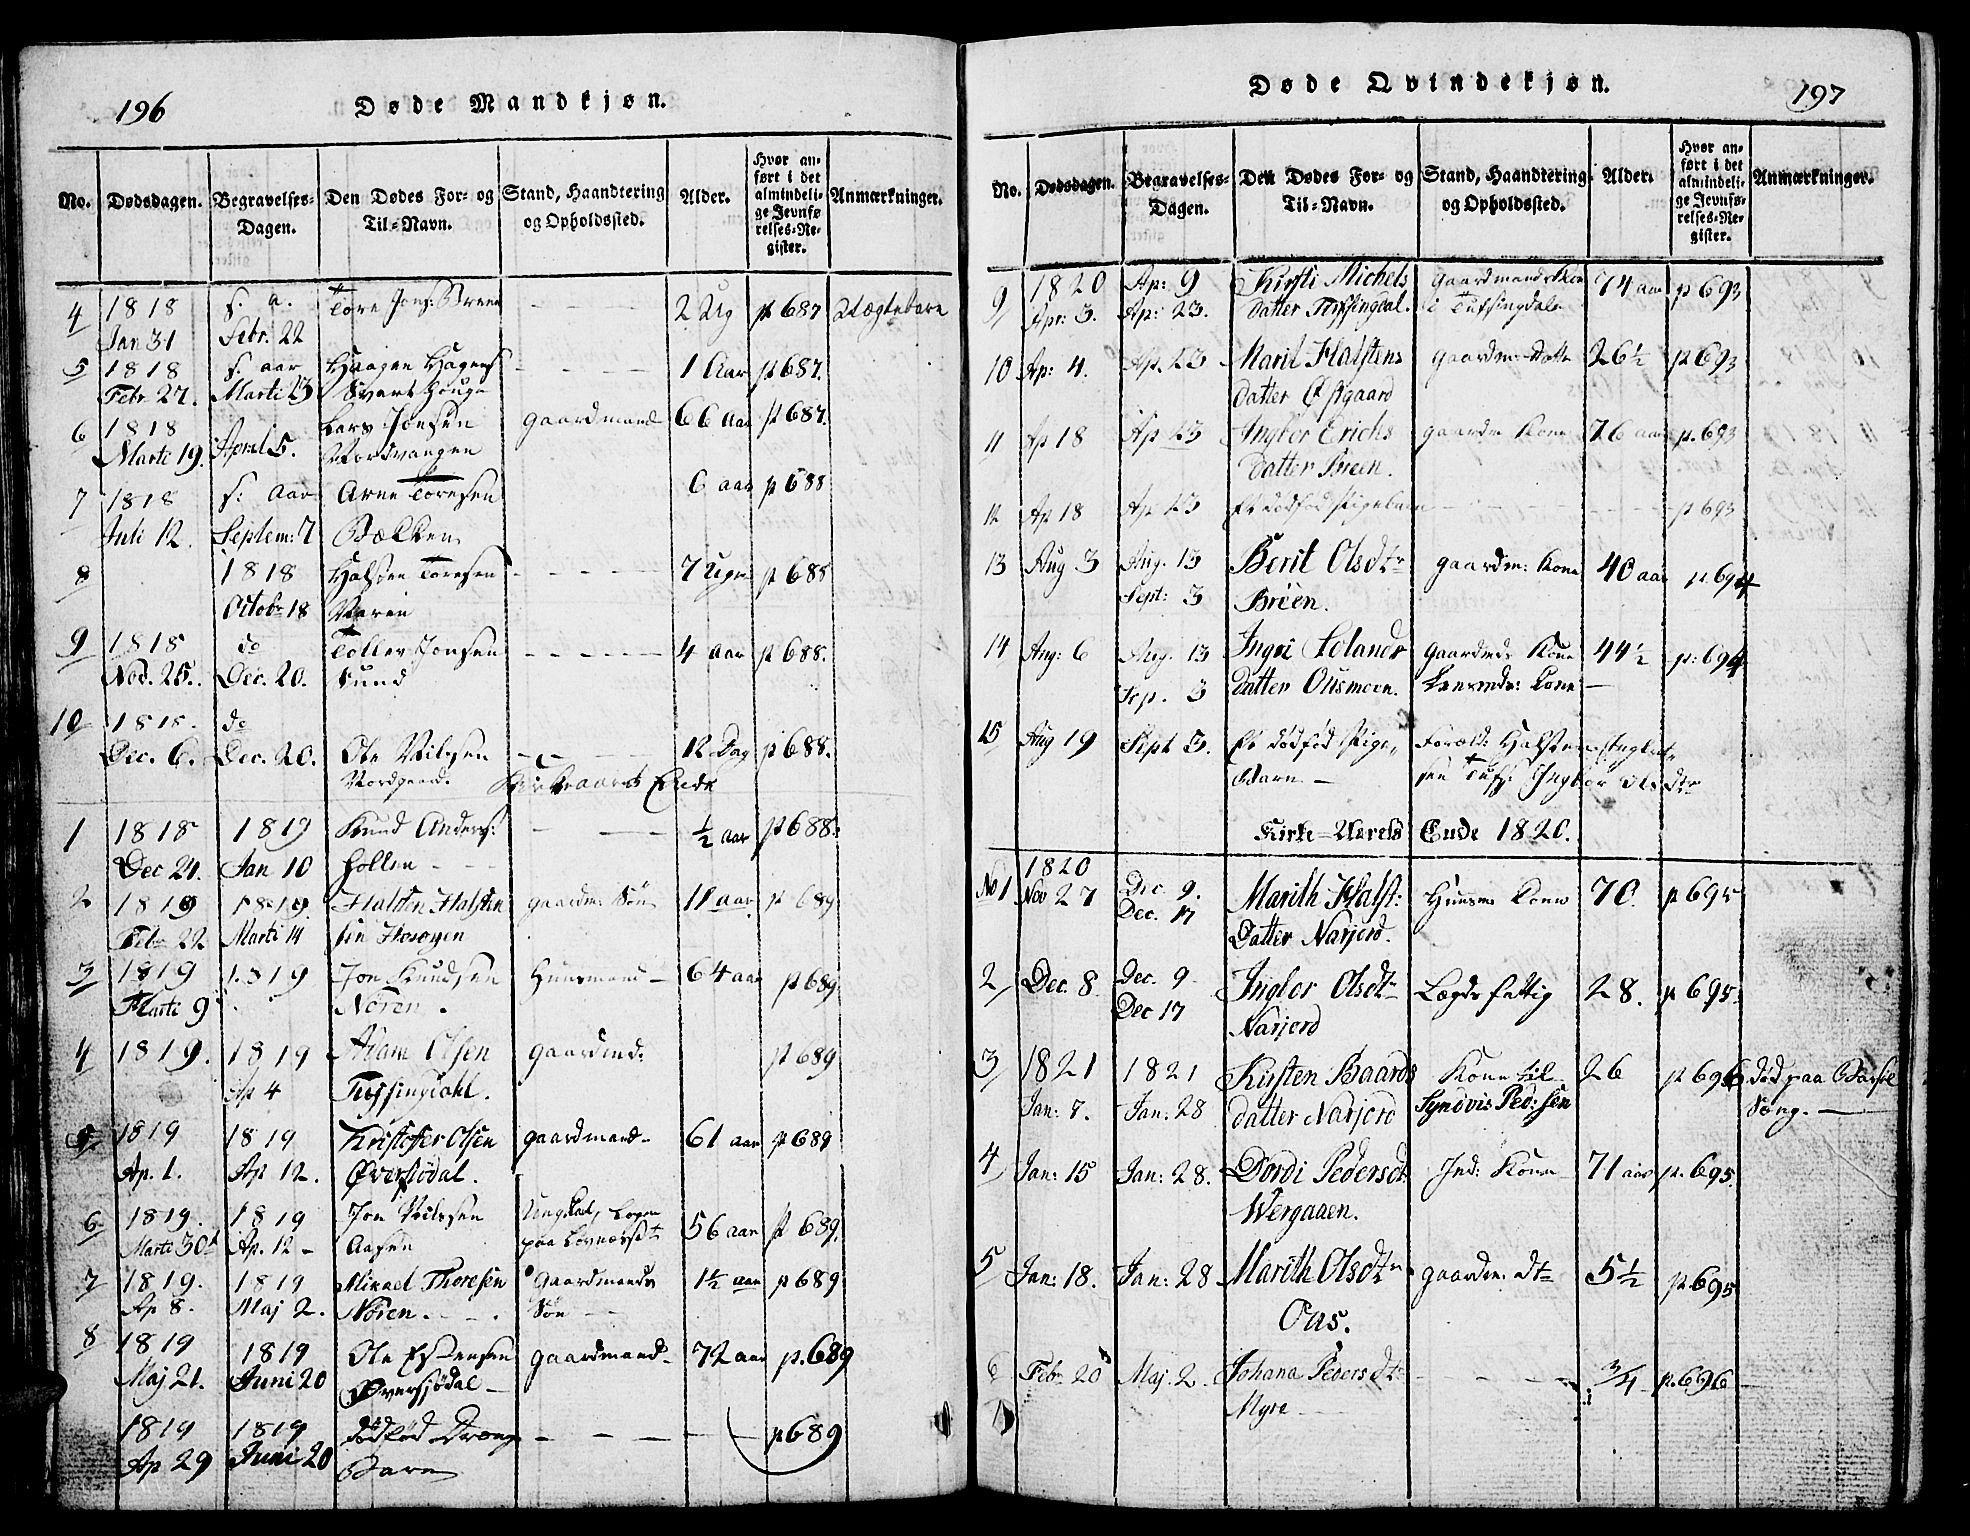 196
Døde Mandkjøn.
No. Dødsdagen. Begravelses-Dagen. Den Dødes For- og Til-Navn. Stand, Haandtering og Opholdssted. Alder. Hvor anført i det almindelige Jevnførelses-Register. Anmærkninger.
4 1818 s. a. Tore Jons: Breen — — 2 Ug p 687
Jan 31 Febr. 22
5 1818 s. aar Haagen Hagens — — 1 Aar p 687.
Febr. 27. Marti 23
6 1818 Lars Jonsen gaardmand 66 aar p 687.
Marti 19. April 5. Nordvangen
7 1818 s: aar Arne Toresen 6 aar p 688
Juli 12. Septem: 7 Bækken
8 1818 Halsten Toresen — — 7 Uger p 688
Octobr 18
9 1818 do Tollev Jonsen — — 4 aar p 688.
Nov. 25. Dec. 20. Sund
10 1818. do
Dec. 6. Dec. 20. Ole Nilssen — — 12 Dag p 688.
Nordgaard. Kirkeaarets Ende
1 1818 1819 Knud Anders: — — ½ aar p 688.
Dec 24. Jan 10
2 1819 1819. Halsten Halsten gaardm: Søn 11 aar p 689
Febr 22 Marti 14 sen
3 1819 1819 Jon Knudsen Huusmand — 64 aar p 689
Marti 9 Nören.
4 1819. 1819 Adam Olsen gaardmd: p 689
Ap 4 Tufsingdahl.
5 1819 1819 Kristofer Olsen gaardmand — 61 aar p 689
Ap. 1. Ap 12. Øversjödal.
6 1819. 1819 Jon Nilssen 56 aar p 689.
Marti 30t Ap. 12 — Aasen paa
7 1819. 1819 Mikael Thoresen Gaardmands 1½ aar p 689
Ap 8. Maj 2. Nören. Søn —
8 1819 1819 Ole Estensen gaardmand — 72 aar p. 689
Maj 21. Juni 20 Øversjödal —
1819 1819 dødfød Drenge — — — p 689
Ap 29 Juni 20 Barn
197
Døde Qvindekjøn.
No. Dødsdagen. Begravelses-Dagen. Den Dødes For- og Til-Navn. Stand, Haandtering og Opholdssted. Alder. Hvor anført i det almindelige Jevnførelses-Register. Anmærkninger.
9 1820 Ap: 9 Kirsti Michels gaardmands Kone 74 aar p 693
Apr: 3. Ap: 23. datter Tufsingdal. i Tufsingdalen
10 Ap: 4. Ap. 23 Marit Halstens gaardm: Datter 26½ p 693
datter Østgaard
11 Ap 18 Ap 23 Ingbor Erichs gaardm Kone 76 aar p. 693
datter Breen.
12 Ap 18 Ap 23 Et dødfød Pigebarn — — — p 693
13 Aug 3 Aug. 13 Berit Olsdtr gaardm: Kone 40 aar p. 694
Sept: 3 Breen.
14 Aug: 6 Aug. 13 Ingri gaardmds Kone 44½ p. 694
Sep. 3 datter Kone —
15 Aug 19 Sept 3. Et dødfød Pige- Foræld: Halsten
Barn — sen Tufs: Ingbor Olsdtr
Kirke-Aarets Ende 1820.
1820
No 1 Nov 27 Dec. 9. Marith Halst: Huusm: Kone 70. p 695
Dec. 17 Datter Narjord.
2 Dec. 8 Dec. 9. Ingbor Olsdtr Lægds fattig 28. p 695.
Dec 17 Narjord
3 1821 1821 Kirsten Baards Kone til 26 p 695 død paa Barsel
Jan: 7. Jan: 28 datter Narjord Synövis Ped: sen Seng. —
4 Jan: 15 Jan: 28. Dordi Pedersdt: Ind: Kone 71 aar p. 695.
Wergaaen.
5 Jan: 18. Jan: 28 Marith Olsdtr gaardm: dtr 5½ p 695
Oas.
6 Febr 20 Maj. 2. Johana Pedersdtr — — ¾ p. 696
Myre —